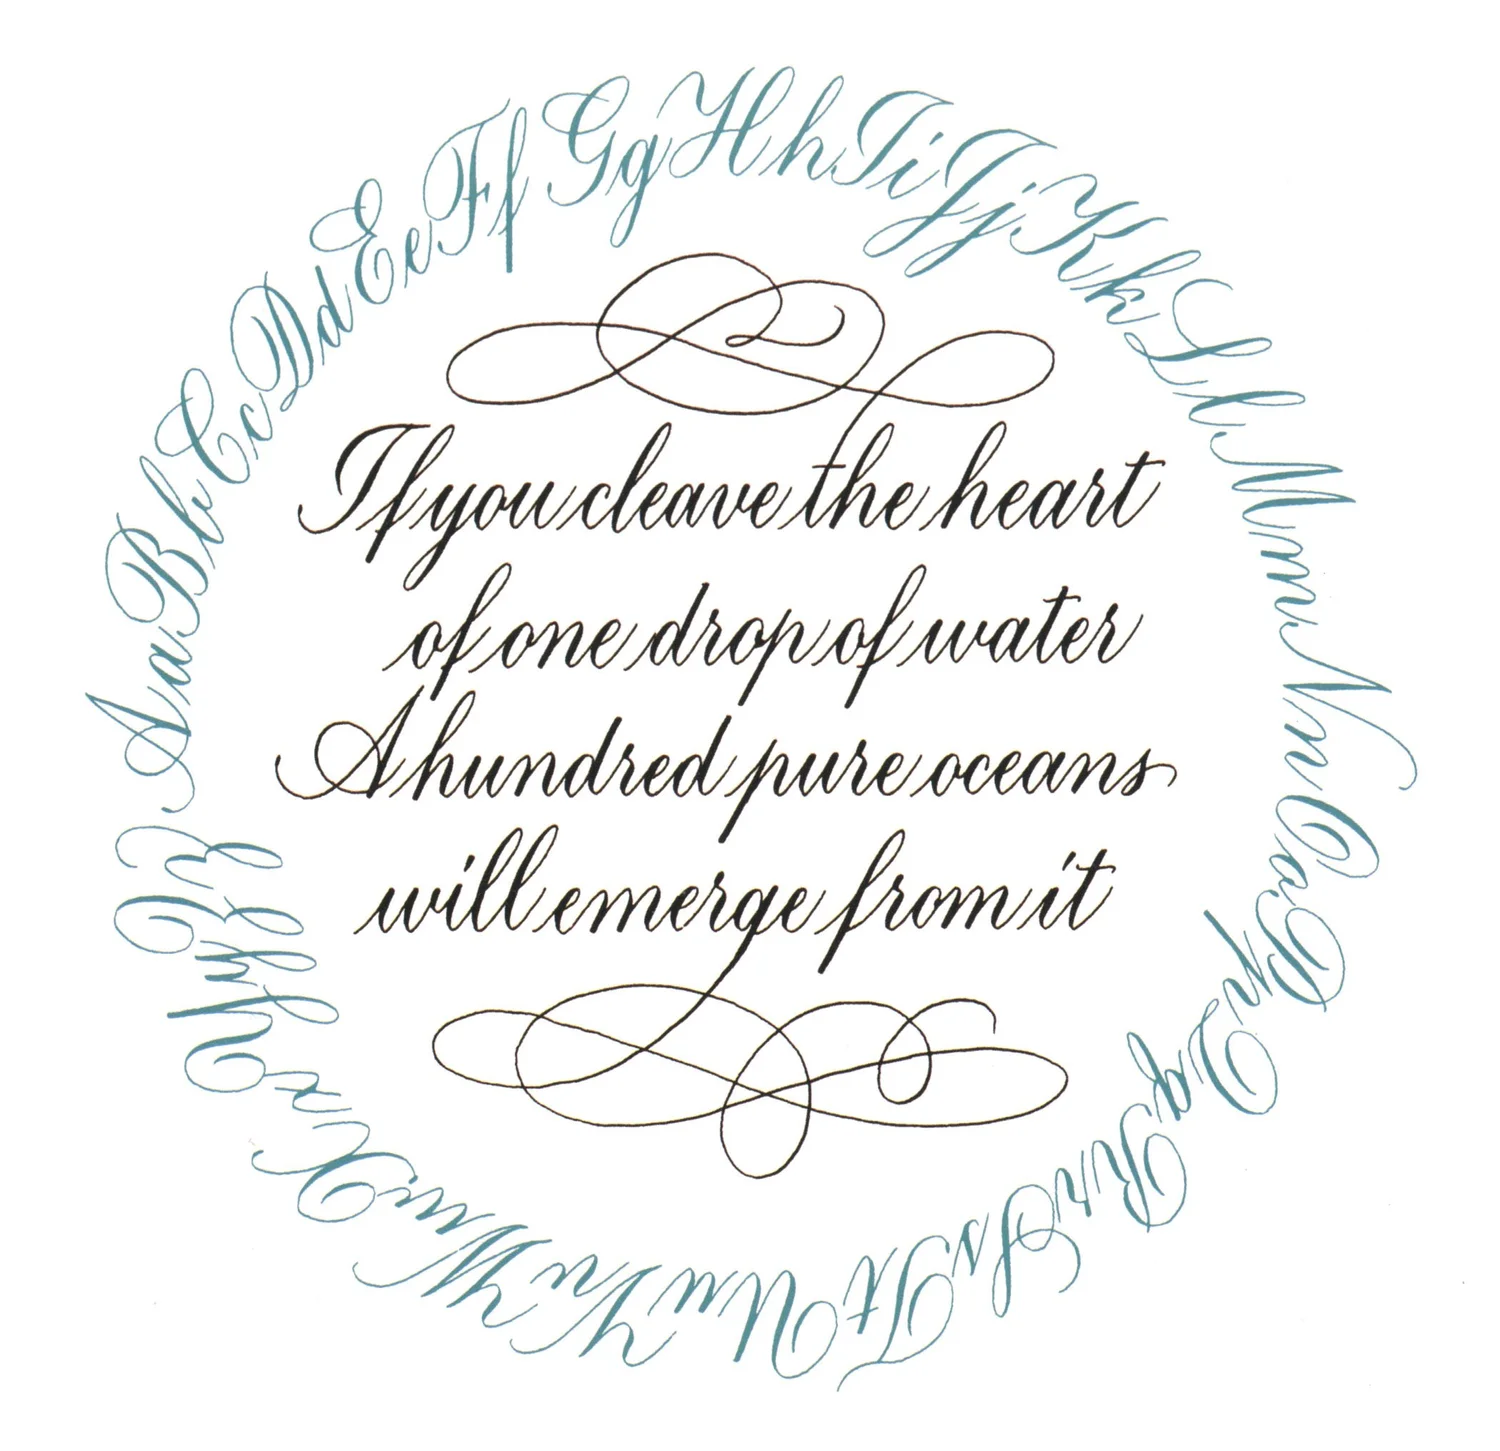 Aa Bb Cc Dd Ee Ff Gg Hh Ii Jj Kk Ll Mm Nn Oo Pp Qq Rr Ss Tt Uu Vv Ww Xx Yy Zz &
If you cleave the heart
of one drop of water
A hundred pure oceans
will emerge from it